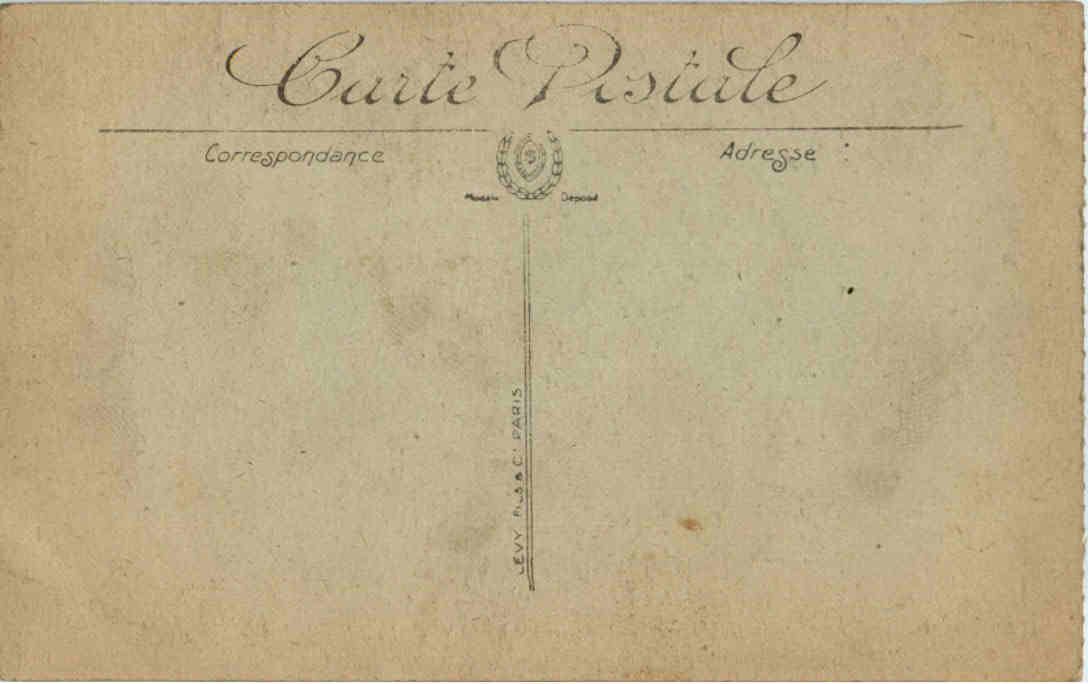 Carte Postale
Correspondance
Adresse :
S
Modèle Déposé
LEVY FILS & Cie PARIS